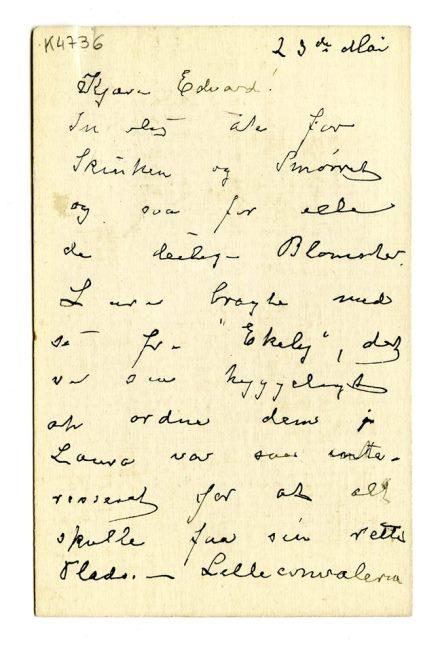 K4736
23de Mai
Kjære Edvard!
for
Skinken og Smørret
og saa for alle
de deilige Blomster.
Laura bragte med
sê fra "Ekely", det
var saa hyggeligt
at ordne dem,
Laura var saa inte-
resseret for at alt
skulde faa sin rette
Plads. – Lilleconvalerne